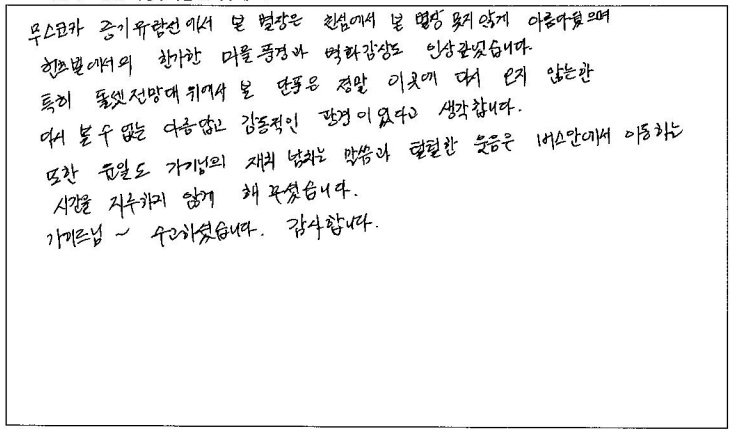 무스코카 증기유람선에서 본 별장은 천섬에서 본 별장 못지않게 아름다웠으며
헌츠빌에서의 한가한 마을풍경과 벽화감상도 인상깊었습니다.
특히 돌셋전망대 위에서 본 단풍은 정말 이곳에 다시 오지 않는한
다시 볼 수 없는 아름답고 감동적인 광경이었다고 생각합니다.
또한 윤일도 가이님의 재치 넘치는 말씀과 털털한 웃음은 버스안에서 이동하는
시간을 지루하지 않게 해 주셨습니다.
가이드님 ~ 수고하셨습니다. 감사합니다.